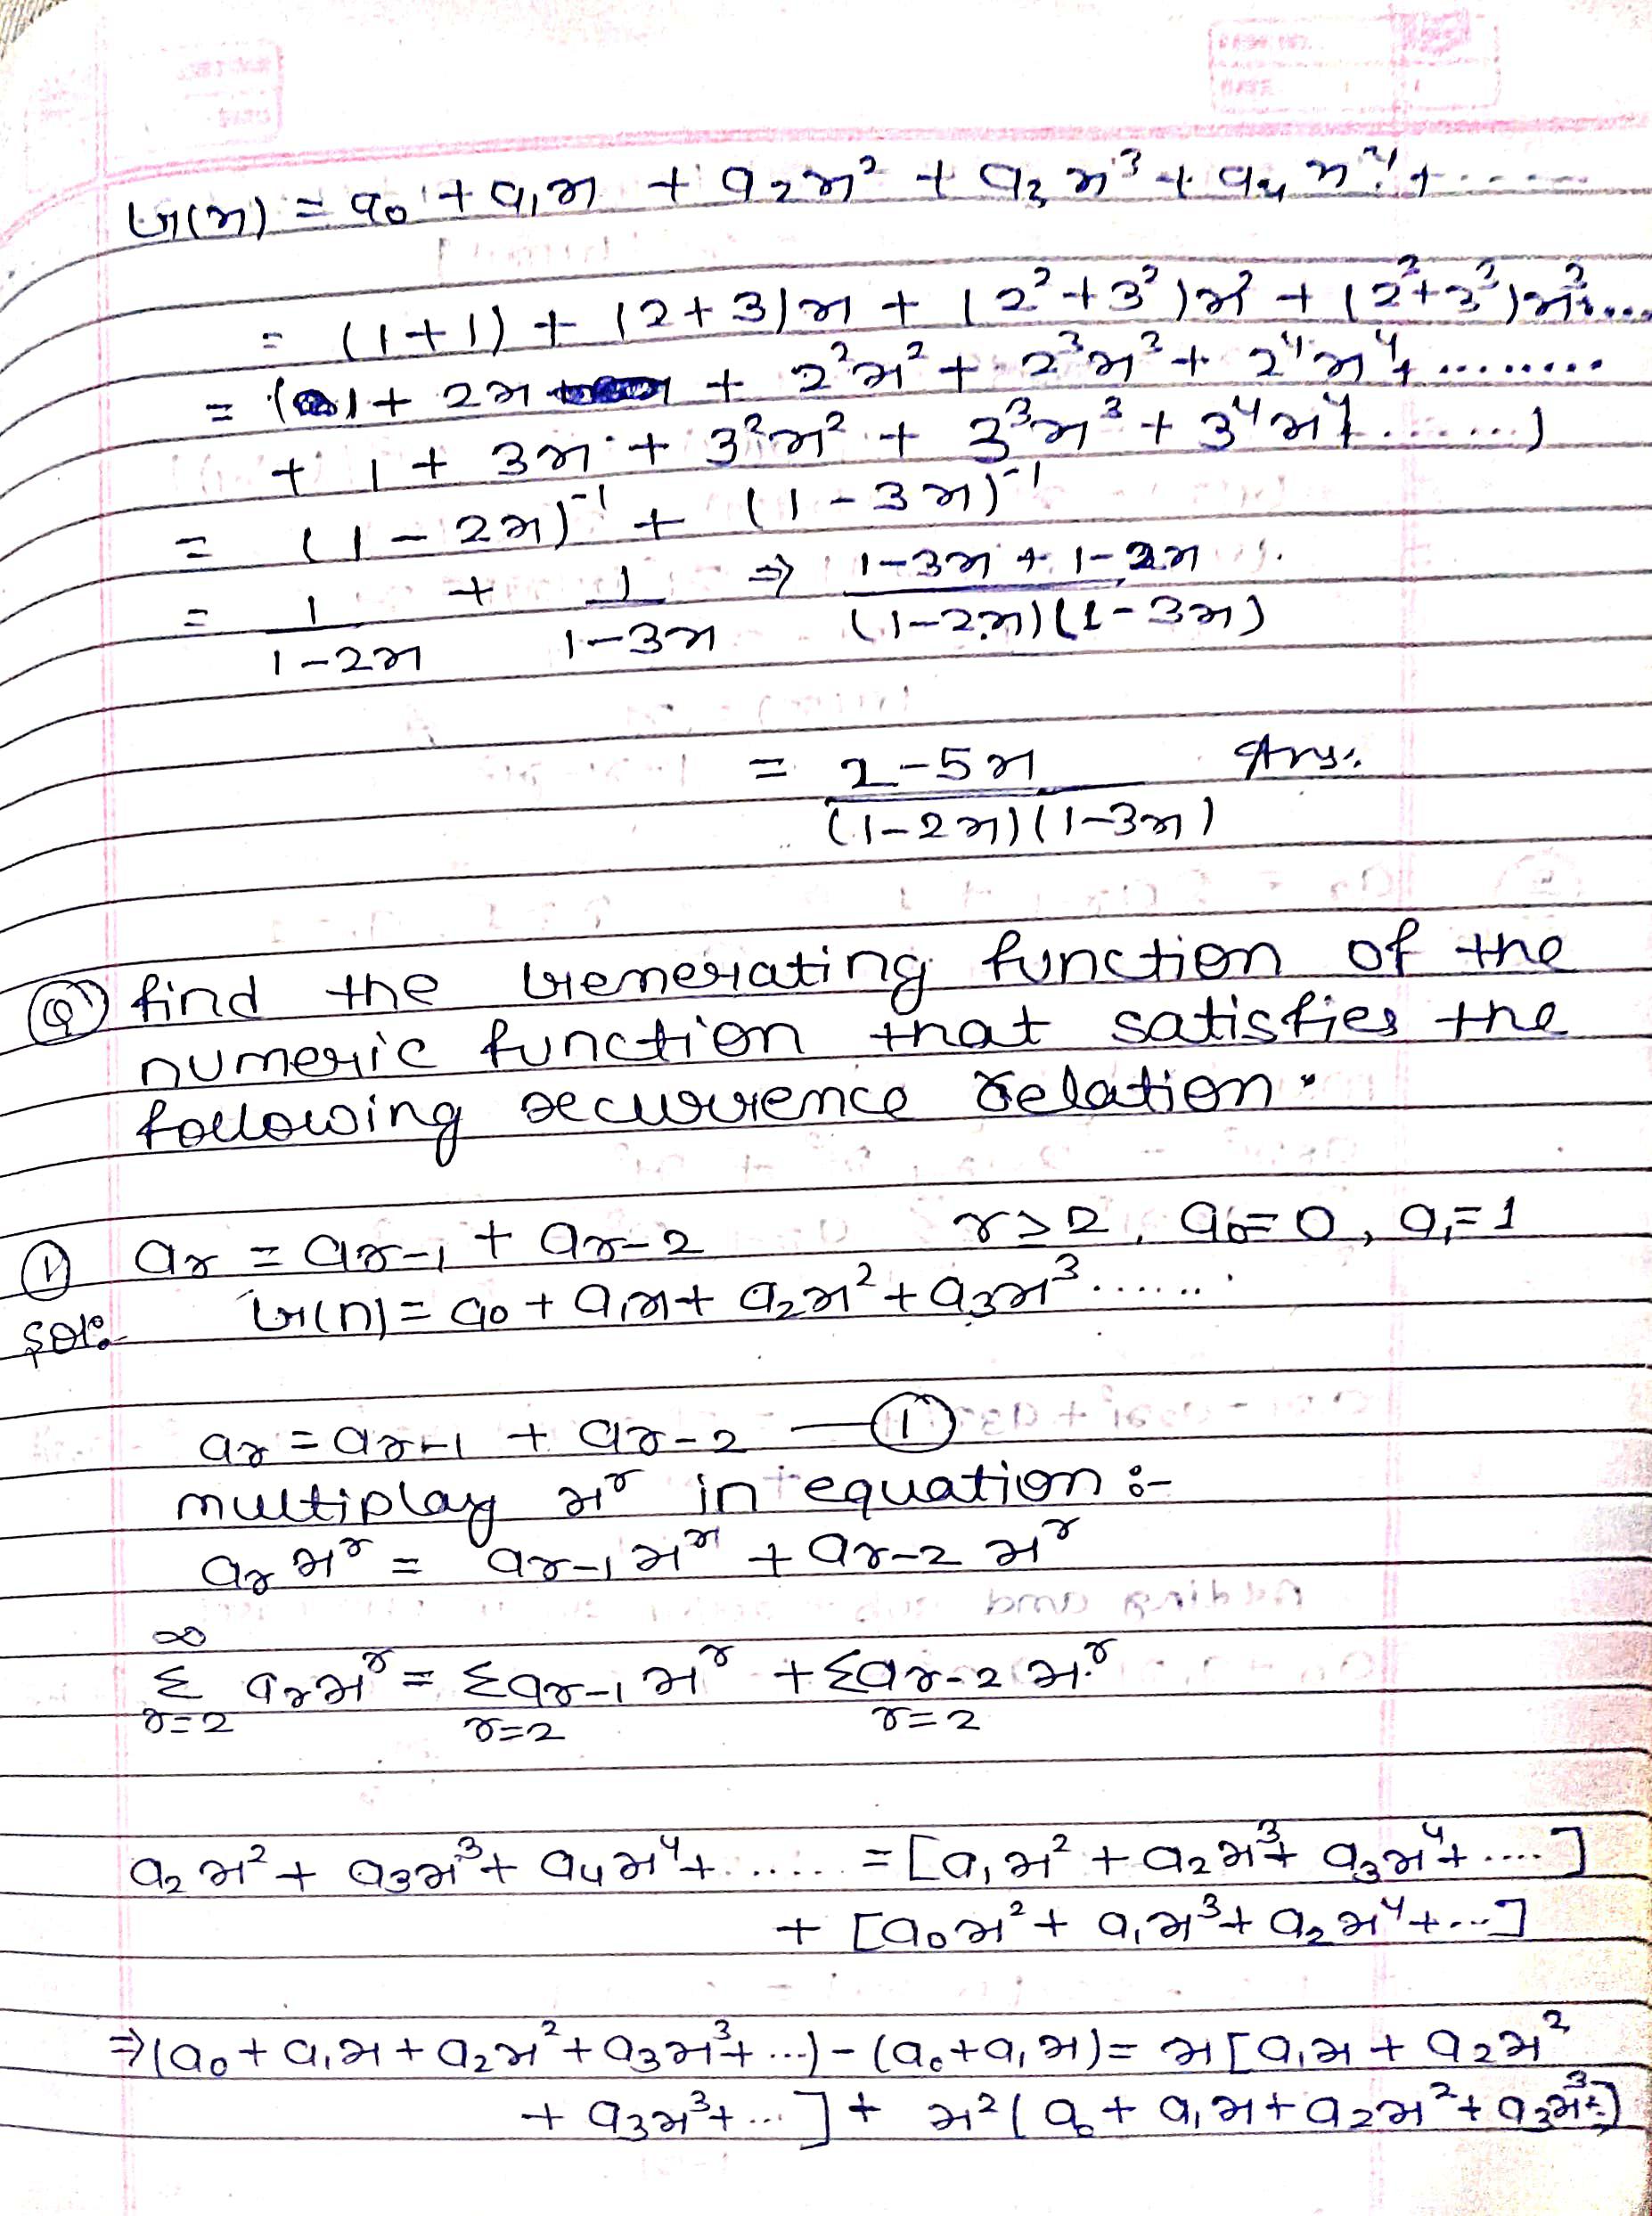 G(x) = a₀ + a₁x + a₂x² + a₃x³ + a₄x⁴ + ......
= (1+1) + (2+3)x + (2²+3²)x² + (2³+3³)x³+...
= (1 + 2x + 2²x² + 2³x³ + 2⁴x⁴+ ........
+ 1 + 3x + 3²x² + 3³x³ + 3⁴x⁴+ .......)
= (1-2x)⁻¹ + (1-3x)⁻¹
= 1/(1-2x) + 1/(1-3x) ⇒ (1-3x + 1-2x)/((1-2x)(1-3x))
= (2-5x)/((1-2x)(1-3x)) Ans.
Q find the Generating function of the
numeric function that satisfies the
following recurrence relation.
① aᵣ = aᵣ₋₁ + aᵣ₋₂ r≥2, a₀=0, a₁=1
Sol:- G(n) = a₀ + a₁x + a₂x² + a₃x³.......
aᵣ = aᵣ₋₁ + aᵣ₋₂ —①
multiplay xʳ in equation :-
aᵣxʳ = aᵣ₋₁xʳ + aᵣ₋₂xʳ
∞
Σ aᵣxʳ = Σaᵣ₋₁xʳ + Σaᵣ₋₂xʳ
r=2 r=2 r=2
a₂x² + a₃x³ + a₄x⁴+ ...... = [a₁x² + a₂x³ + a₃x⁴+ ....]
+ [a₀x² + a₁x³ + a₂x⁴+...]
⇒(a₀ + a₁x + a₂x² + a₃x³+ ...) - (a₀+a₁x) = x[a₁x + a₂x²
+ a₃x³+ ...] + x²(a₀ + a₁x + a₂x² + a₃x³+..)